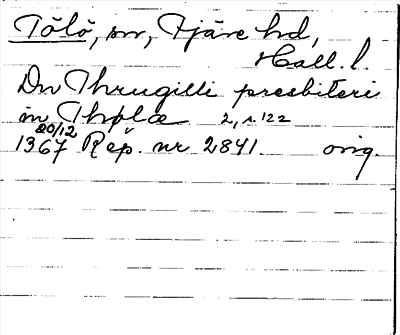 Tölö, sn, Fjäre hd,
Hall. l.
Dn Thrugilli presbiteri
in Thølæ 2, s. 122
20/12
1367 Rep. nr 2841. orig.